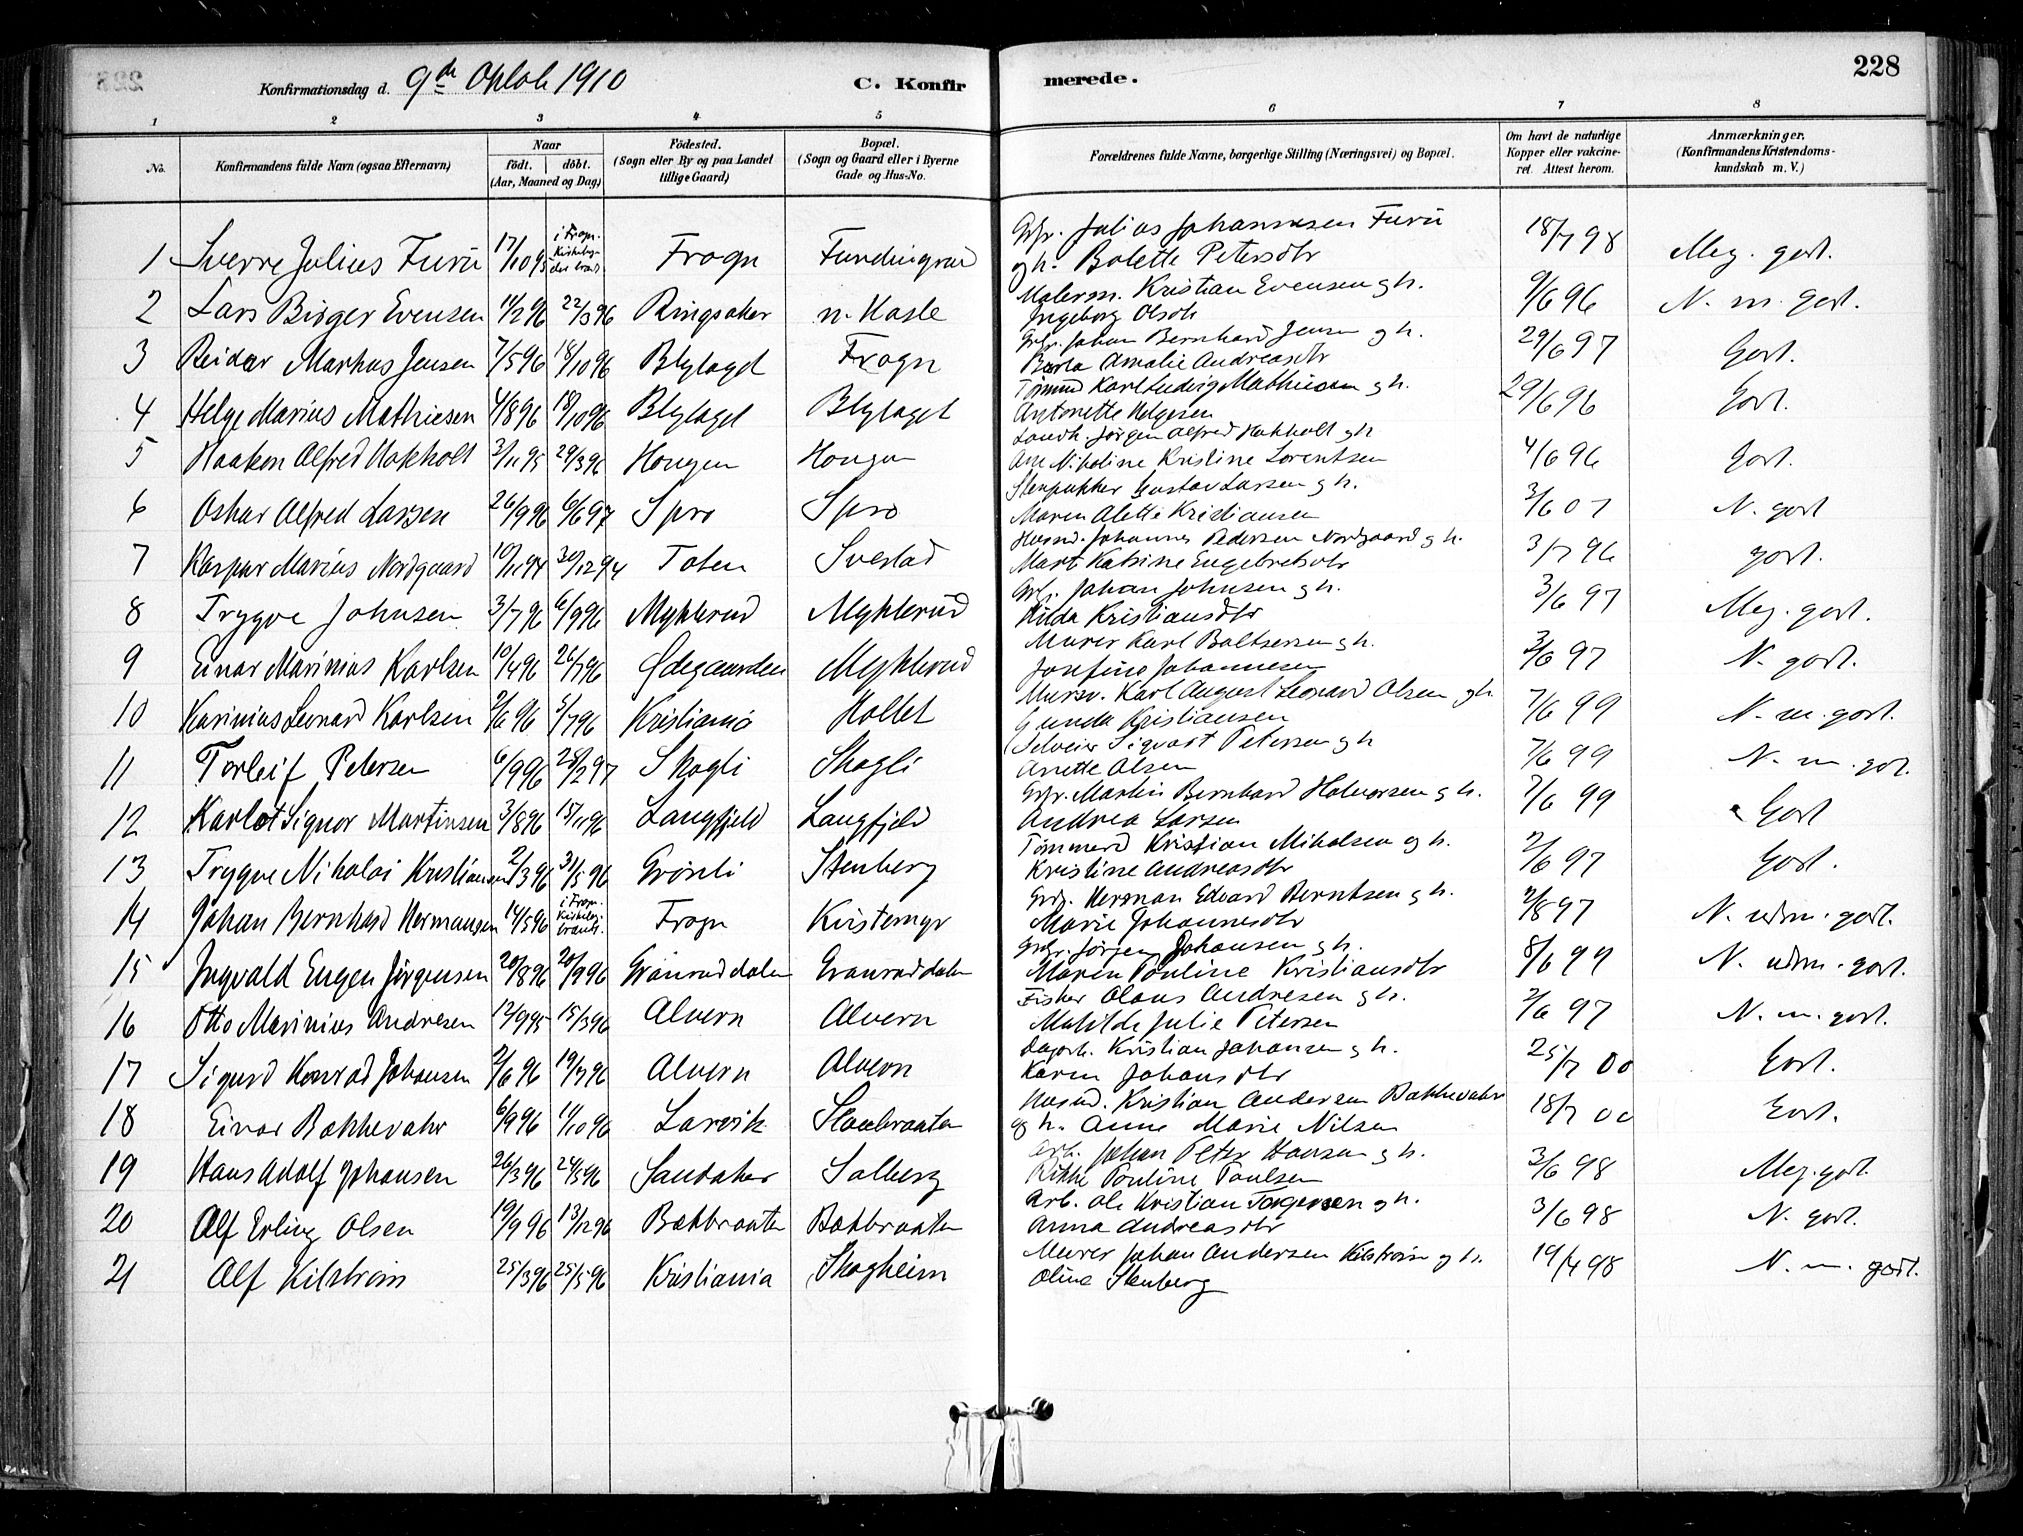 228
Konfirmationsdag d. 9de Oktob 1910 C. Konfirmerede.
1 2 3 4 5 6 7 8
No. Konfirmandens fulde Navn (ogsaa Efternavn) Naar födt. döbt. (Aar, Maaned og Dag) Födested. (Sogn eller By og paa Landet tillige Gaard) Bopæl. (Sogn og Gaard eller i Byerne Gade og Hus-No. Forældrenes fulde Navne, borgerlige Stilling (Næringsvei) og Bopæl. Om havt de naturlige Kopper eller vakcineret. Attest herom. Anmærkninger. (Konfirmandens Kristendomskundskab m. V.)
1 Sverre Julius Furu 17/10 95 i Frogn. Frogn Julius Johannesen Furu og h. Bolette Petersdtr 18/7 98 Meg. godt.
2 Lars Birger Evensen 11/2 96 22/3 96 Ringsaker n. Kasle Malerm. Kristian Evensen g h. Ingeborg Olsdtr 9/6 96 N. m. godt.
3 Reidar Markus Jensen 7/5 96 18/10 96 Blylaget Frogn Johan Bernhard Jensen g h. Amalie Andreasdtr 29/6 97 Godt.
4 Helge Marius Mathiesen 4/8 96 18/10 96 Blylaget Blylaget Karl Ludvig Mathiesen g h. Antonette Helgesen 29/6 96 Godt.
5 Haakon Alfred Hokholt 3/11 95 29/3 96 Hougen Hougen Jørgen Alfred Hokholt g h Nikoline Kristine Lorentsen 4/6 96 Godt.
6 Oskar Alfred Larsen 26/9 96 6/6 97 Spro Spro Stenpukker Gustav Larsen g h. Maren Alette Kristiansen 3/6 07 N. godt
7 Kaspar Marius Nordgaard 10/11 94 30/12 94 Toten Svestad Husmd. Johannes Pedersen Nordgaard g h. Mart Katrine Engebretsdtr 3/7 96 godt.
8 Trygve Johnsen 3/7 96 6/9 96 Myklerud Myklerud Johan Johnsen g h. Hilda Kristiansdtr 3/6 97 Meg. godt.
9 Einar Marinius Karlsen 10/4 96 26/7 96 Ødegaarden Myklerud Murer Karl Baltsersen g h. Josefine Johannesen 3/6 97 N. godt.
10 Karinius Leonard Karlsen 2/6 96 5/7 96 Kristiania Hollet Karl August Leonard Olsen g h. Gunda Kristiansen 7/6 99 N. m. godt.
11 Torleif Petersen 6/9 96 28/2 97 Skogli Skogli Selveier Sigvart Petersen g h Anette Olsen 7/6 99 N. m. got.
12 Karlot Signor Martinsen 3/8 96 15/11 96 Langfjeld Langfjeld Martin Bernhard Halvorsen g h. Andrea Larsen 7/6 99 Godt
13 Trygve Nikolai Kristiansen 2/3 96 31/5 96 Grönli Stenberg Tömmerd Kristian Mikalsen og h. Kristine Andreasdtr 2/6 97 Godt.
14 Johan Bernhard Hermansen 14/5 96 i Frogn. Frogn Kristemyr Herman Edvard Berntsen g h. Marie Johannesdtr 2/8 97 N. udm. godt.
15 Ingvald Eugen Jörgensen 20/8 96 20/9 96 Granruddalen Granruddalen Jörgen Johansen g h. Maren Pouline Kristiansdtr 8/6 99 N. udm. godt.
16 Otto Marinius Andresen 12/9 95 15/3 96 Alvern Alvern Fisker Olaus Andresen g h. Matilde Julie Petersen 2/6 97 N. m. godt.
17 Sigurd Konrad Johansen 2/6 96 19/7 96 Alvern Alvern Dagarb. Kristian Johansen g h. Karen Johansdtr 25/7 00 Godt.
18 Einar Bakkevahr 6/9 96 11/10 96 Larvik Skaubraaten Husmd. Kristian Andersen Bakkevahr og h. Anne Marie Nilsen 18/7 00 Godt.
19 Hans Adolf Johansen 26/3 96 24/5 96 Sandaker Solberg Arb. Johan Peter Hansen g h. Rikke Pouline Poulsen 3/6 98 Meg. godt.
20 Alf Erling Olsen 19/9 96 13/12 96 Bækbraaten Bækbraaten Arb. Ole Kristian Torgersen g h. Anna Andreasdtr 3/6 98 N. godt.
21 Alf Kilström 25/3 96 25/5 96 Kristiania Skogheim Murer Johan Andersen Kilström og h. Oline Stenberg 19/4 98 N. m. godt.